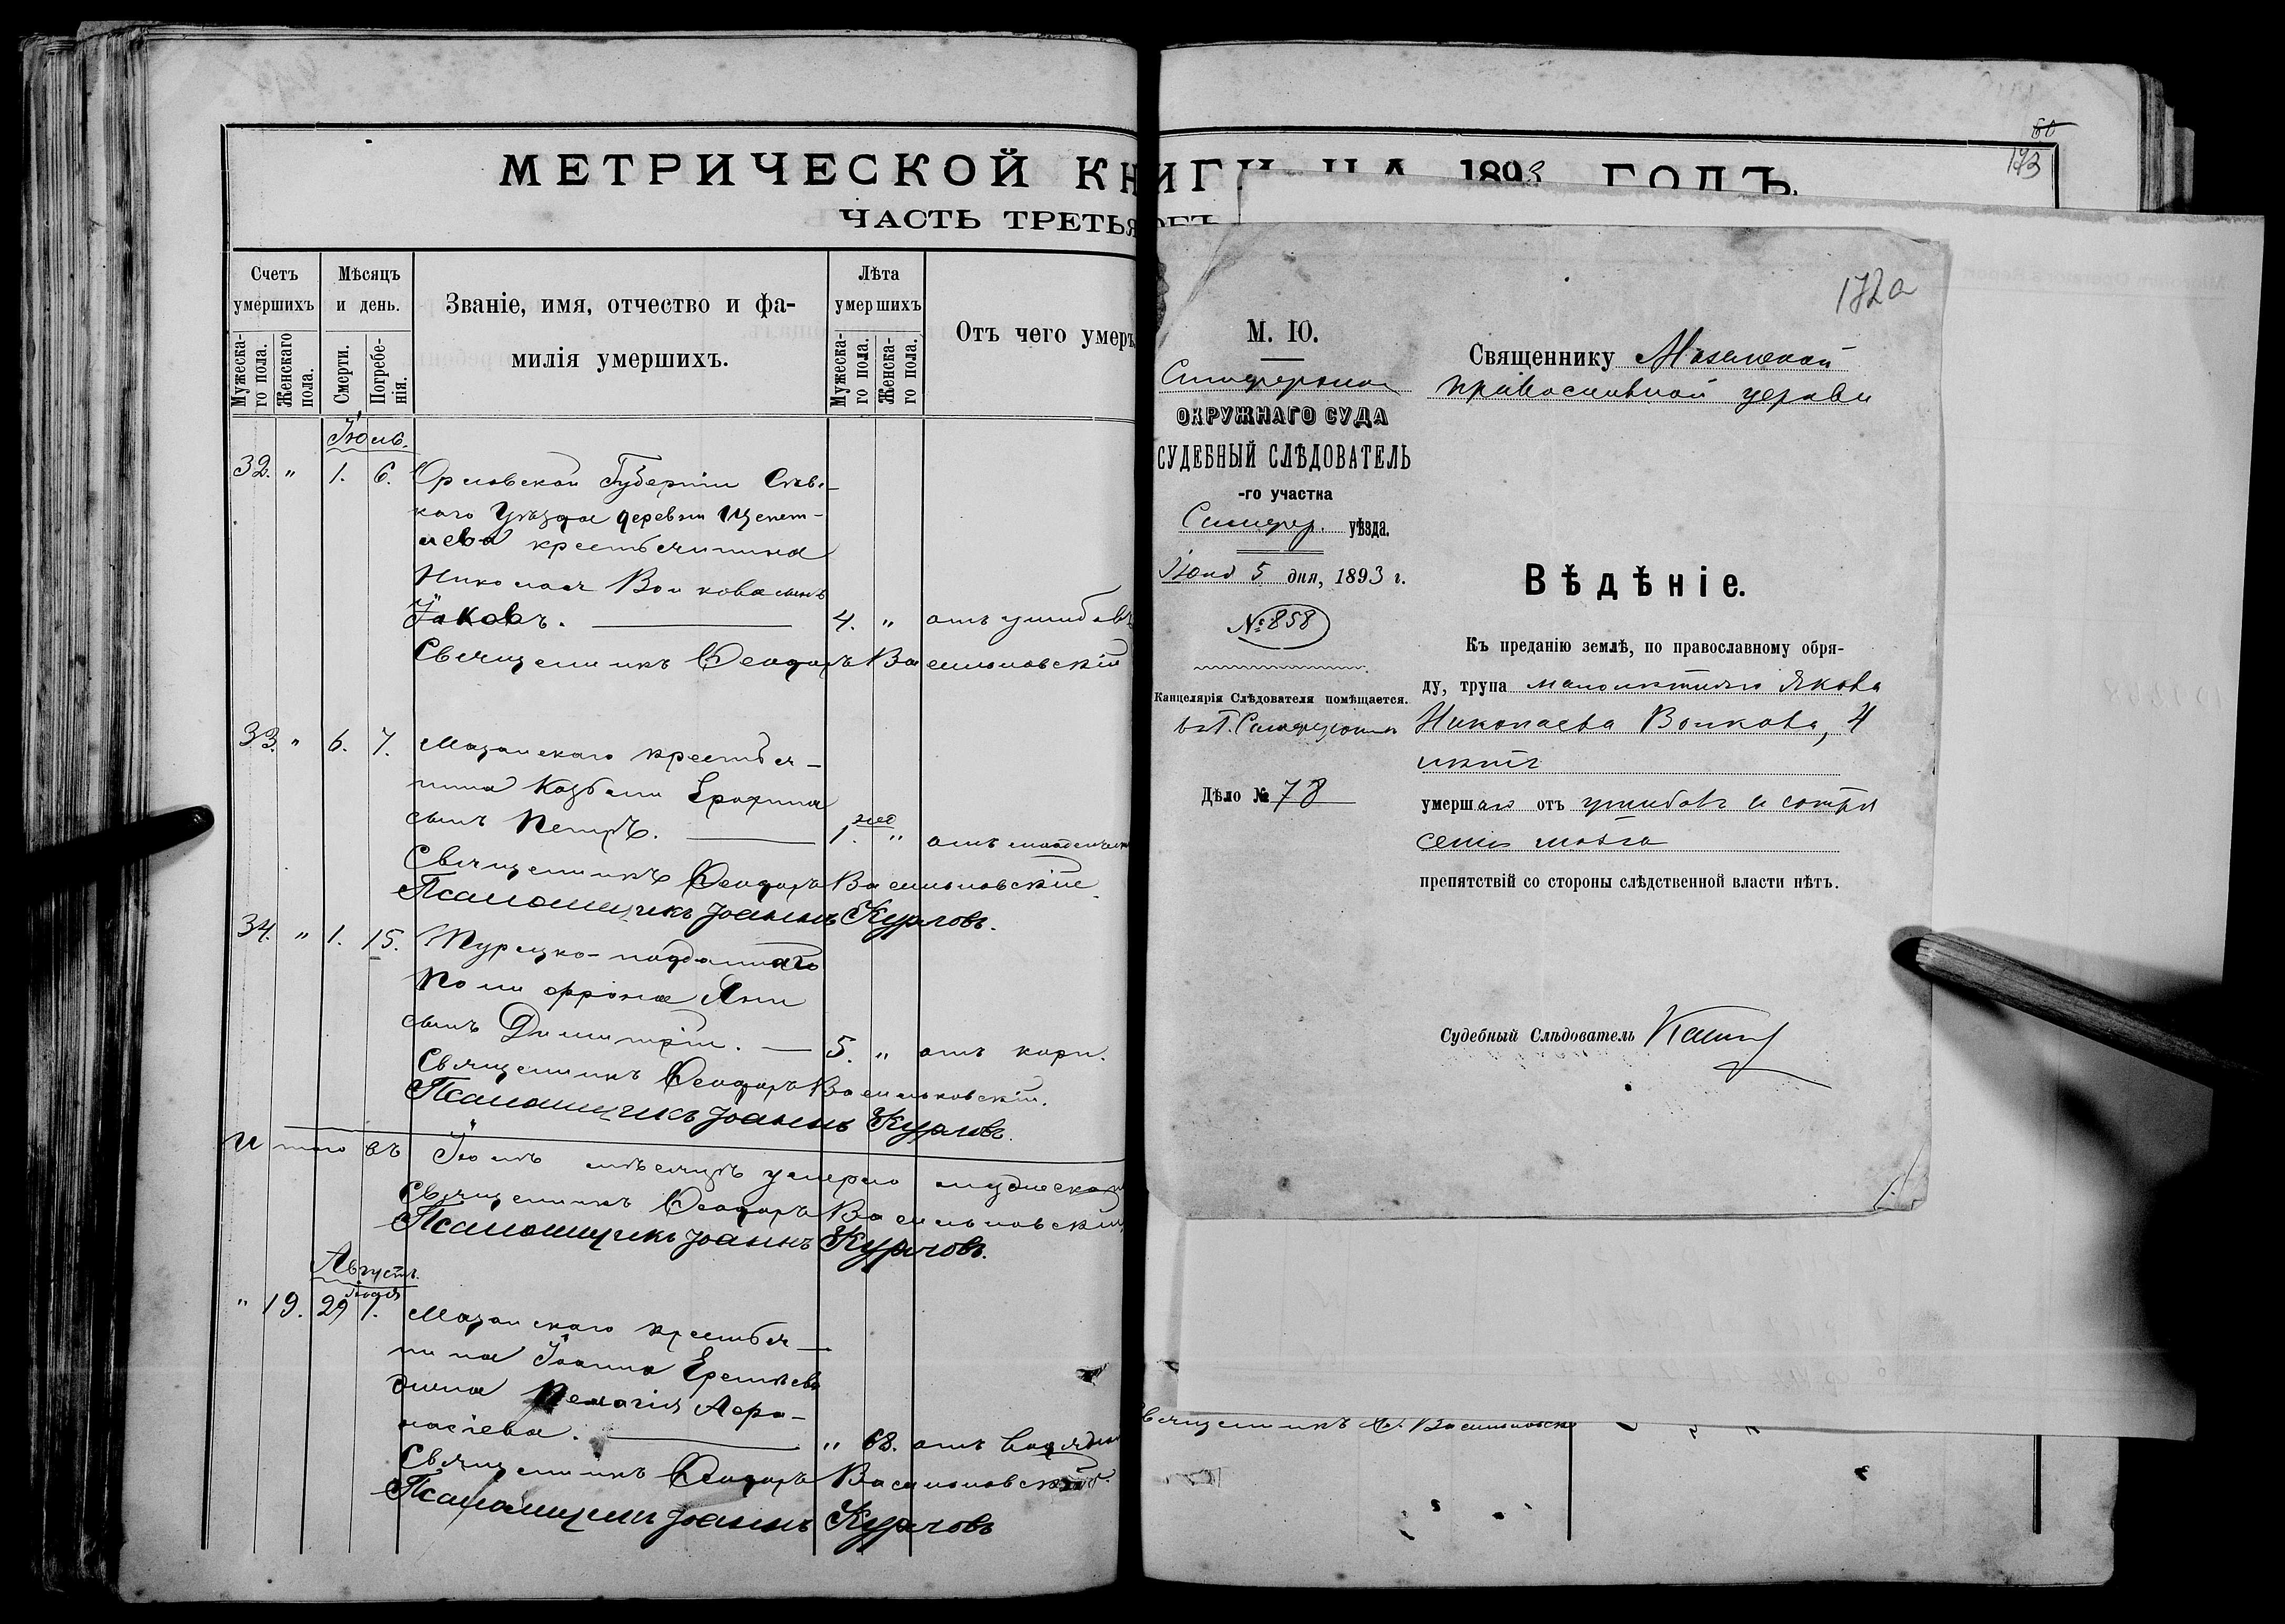 МЕТРИЧЕСКОЙ КНИГИ НА 1893 ГОДЪ
ЧАСТЬ ТРЕТЬЯ ОБЪ
60
173
Счетъ умершихъ
Мужеска-го пола.
Женскаго пола.
Мѣсяцъ и день.
Смерти.
Погребе-нія.
Званіе, имя, отчество и фа-
милія умершихъ.
Лѣта умершихъ
Мужеска-го пола.
Женска-го пола.
Отъ чего умеръ
Іюль.
32. " 1. 6. Орловской Губерніи Сѣвс-
каго Уѣзда деревни
крестьянина
Николая Волкова сынъ
Іаковъ. 4. " отъ ушибовъ
Священникъ Ѳеодоръ Васильковскій
33. " 6. 7. Мазанскаго крестья-
нина Козьмы Ерофина
сынъ Петръ. 1. нед " отъ
Священникъ Ѳеодоръ Васильковскій
Псаломщикъ Іоаннъ Курловъ.
34. " 1. 15. Турецко-подданнаго
Яни
сынъ Димитрій. 5. " отъ кори.
Священникъ Ѳеодоръ Васильковскій.
Псаломщикъ Іоаннъ Курловъ.
Итого въ Іюлѣ мѣсяцѣ умерло мужеска
Священникъ Ѳеодоръ Васильковскій
Псаломщикъ Іоаннъ Курловъ.
Августъ.
" 19. 29 Іюля 1. Мазанскаго крестья-
нина Іоанна Еремѣева
жена Пелагія Аѳа-
насіева. " 68. отъ
Священникъ Ѳеодоръ Васильковскій.
Псаломщикъ Іоаннъ Курловъ
172а
М. Ю.
Симферопол
ОКРУЖНАГО СУДА
СУДЕБНЫЙ СЛѢДОВАТЕЛЬ
-го участка
Симфер. уѣзда.
Іюля 5 дня, 1893 г.
№ 858
Канцелярія Слѣдователя помѣщается.
въ г. Симферополѣ
Дѣло № 78
Священнику Мазанской
православной церкви
Вѣдѣніе.
Къ преданію землѣ, по православному обря-
ду, трупа малолѣтняго Якова
Николаева Волкова, 4
лѣтъ
умершаго отъ ушибовъ и сотря
сенія мозга
препятствій со стороны слѣдственной власти нѣтъ.
Судебный Слѣдователь
Священникъ Ѳ. Васильковск